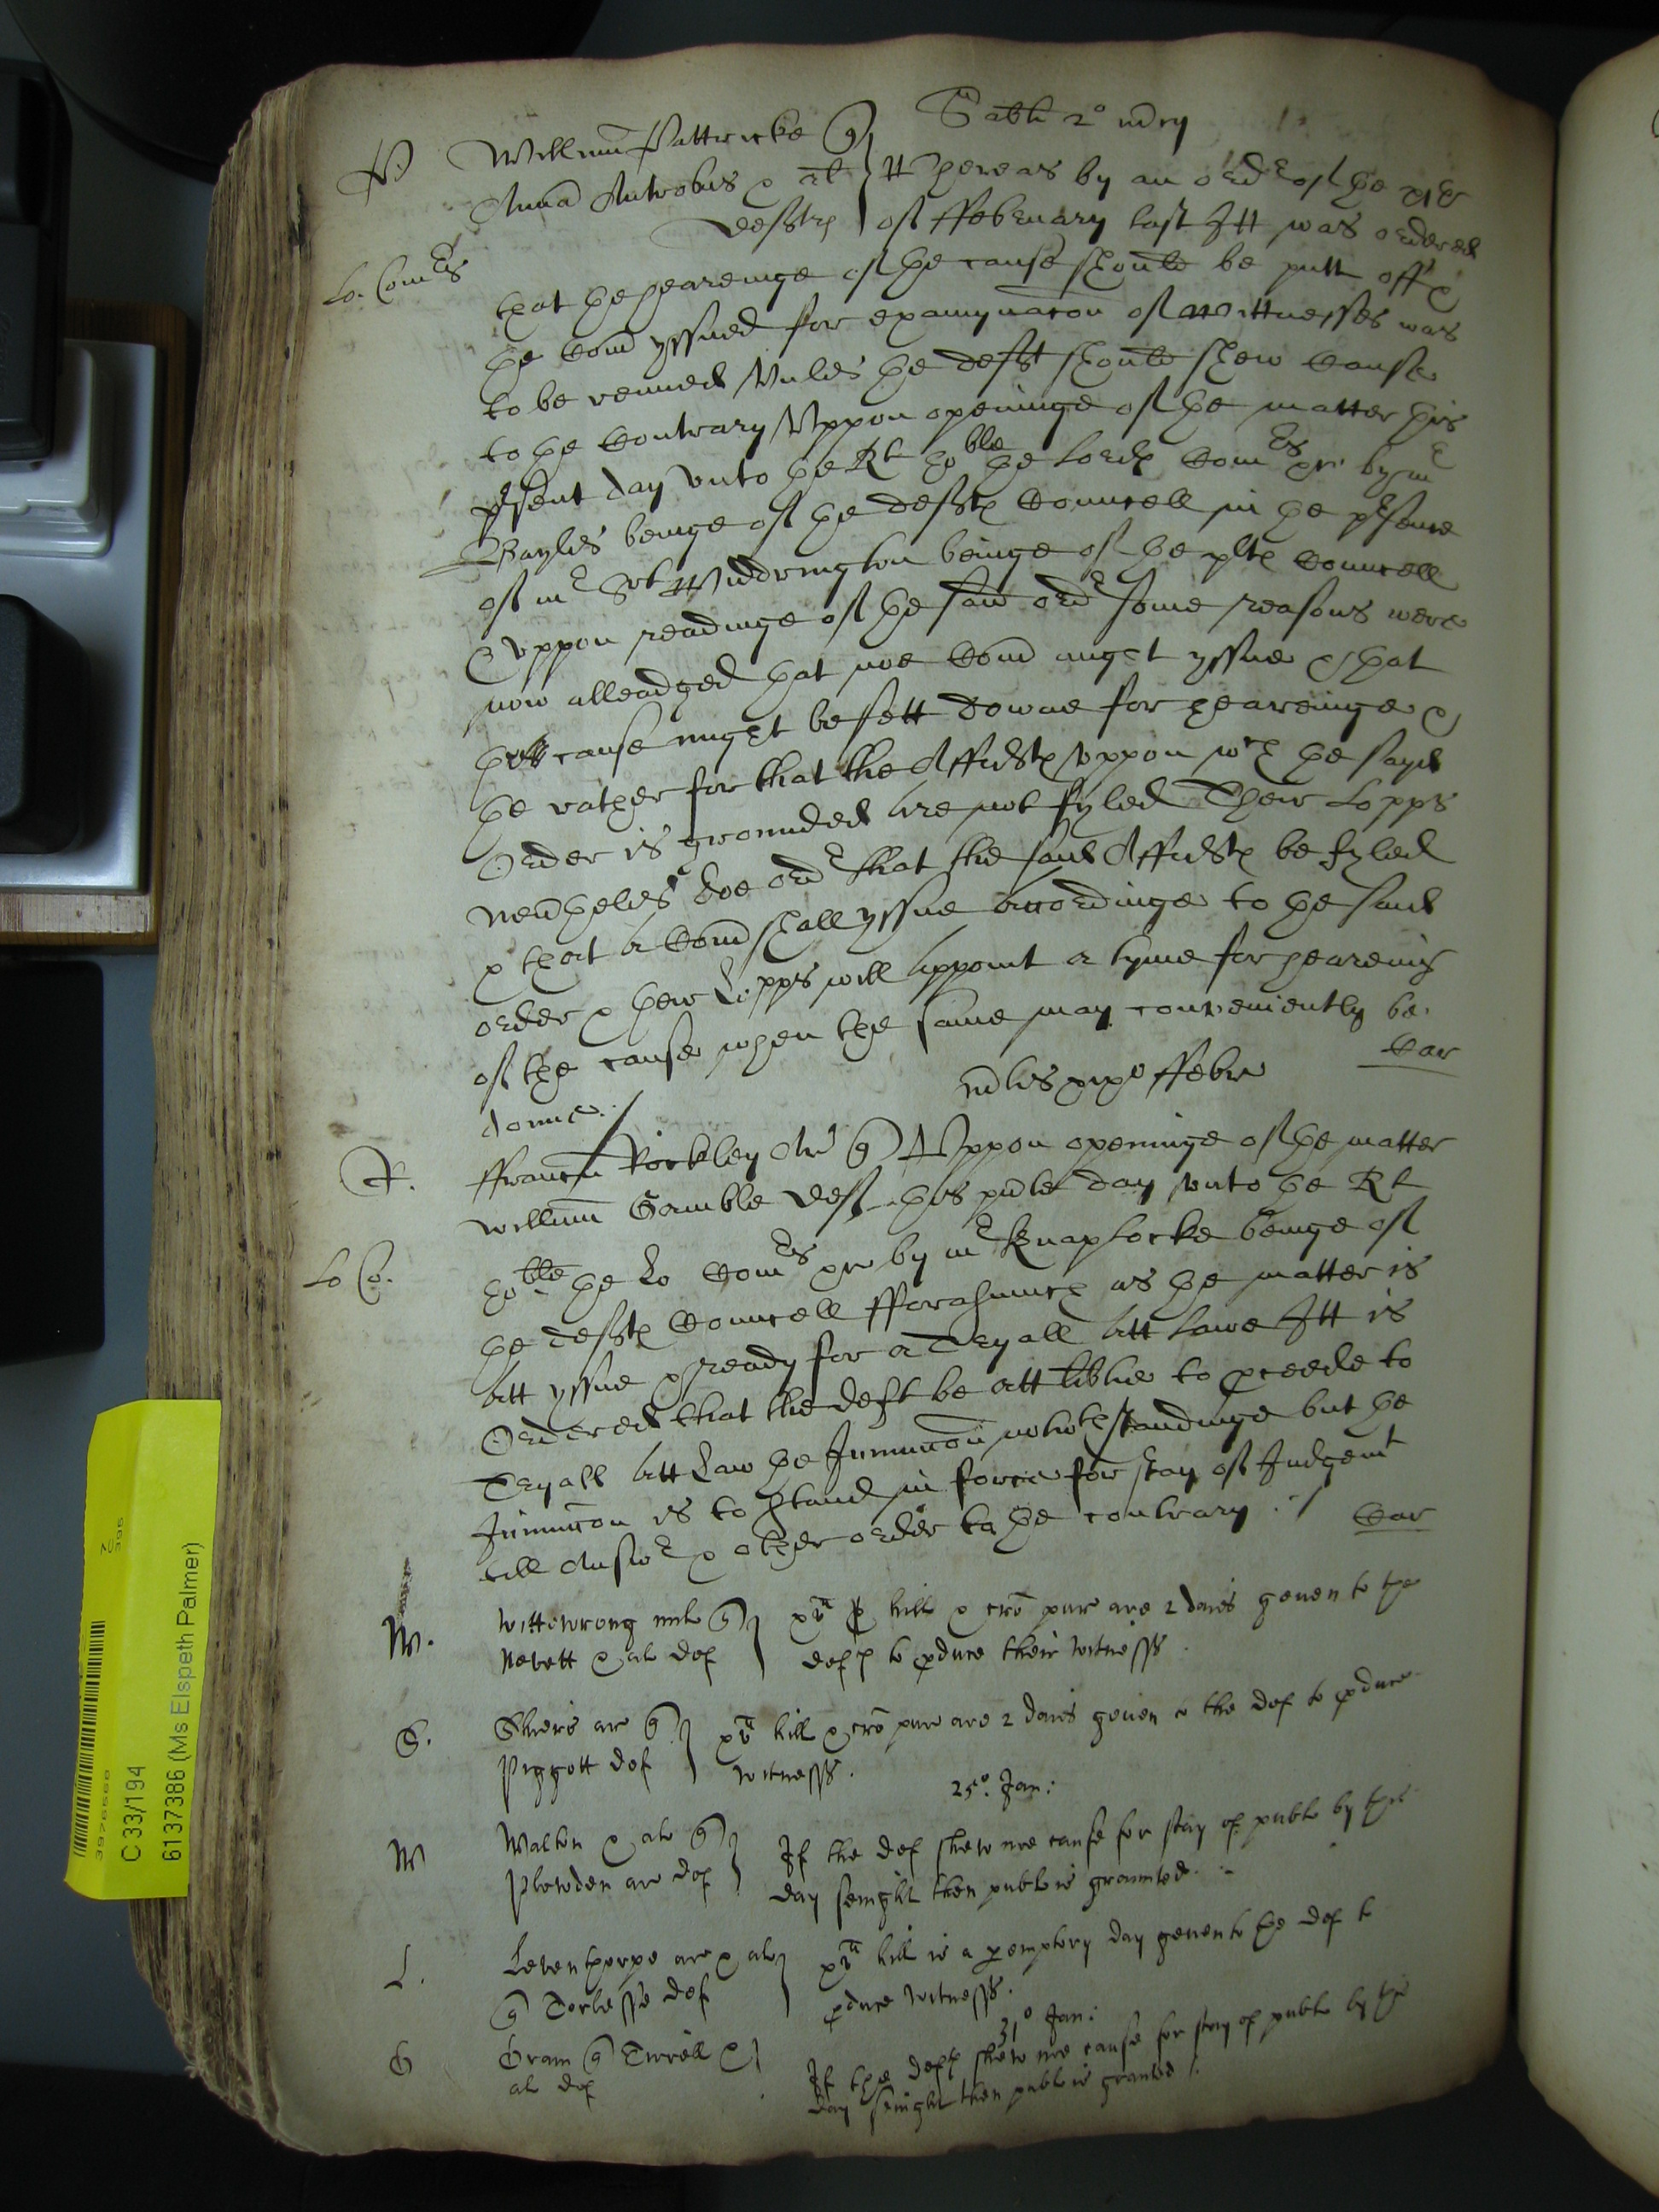 Sabti 2° 
P. Willimu Pattricke q
Anna Antrobus & al Whereas by an ordr of the
deftes of ffebruary last Itt was ordered
Lo: Comrs that the heareinge of the cause should be putt off &
the Com yssued for examynacon of wittnesses was
to be renued Unles the deft should shew Cause
to the Contrary Uppon openinge of the matter this
prsent day unto the Rt Hoble the Lordes Comrs by mr
Bayles beinge of the deftes Councell in the prsence
of mr Srt Widdrington beinge of the pltes Councell
& uppon readinge of the said ordr some reasons were
now alleadged that noe Com might yssue & that
the cause might be sett downe for heareinge &
the rather for that the Affidtes uppon wch the sayd
Order is grounded are not fyled Their Lopps
neverthelesse doe ordr that the said Affidtes be fyled
& that a Com shall yssue accordinge to the said
order & their Lopps will appoint a tyme for heareing
of the cause when the same may conveniently be
donne ./ Car
ffebr
R. ffrancis Rockley Ar q Uppon openinge of the matter
Willimu Gamble deft this pnte day unto the Rt
Lo Co: Hoble the Lo Comrs by mr Knaplocke beinge of
the deftes Councell fforasmuch as the matter is
att yssue & ready for a Tryall att Lawe Itt is
Ordered that the deft be att libtie to pceede to
Tryall att Law the Iniunccon notwthstandinge but the
Iniunccon is to stand in force for stay of Judgemt
till Answr & other order to the contrary ./ Car
W. Wittewrong mil q pr bill & cro pure are 2 daies geuen to the
Nevett & al def deftes to pduce their witnesses.
S. Sheris ar q pr bill & cro pure are 2 daies geuen to the def to pduce
Piggott def witnesses.
25°. Jan:
W Walton & als q If the def shew noe cause for stay of publc by this
Plowden ar def day senight then publc is graunted.
L. Leventhorpe ar & als pr bill is a peremptory day geuen to the def to
q Corbesse def pduce witnesses.
31° Jan:
G Gram q Tirrell & If the deftes shew noe cause for stay of publc by this
al def day senight then publc is granted.
C 33/194
6137386 (Ms Elspeth Palmer)